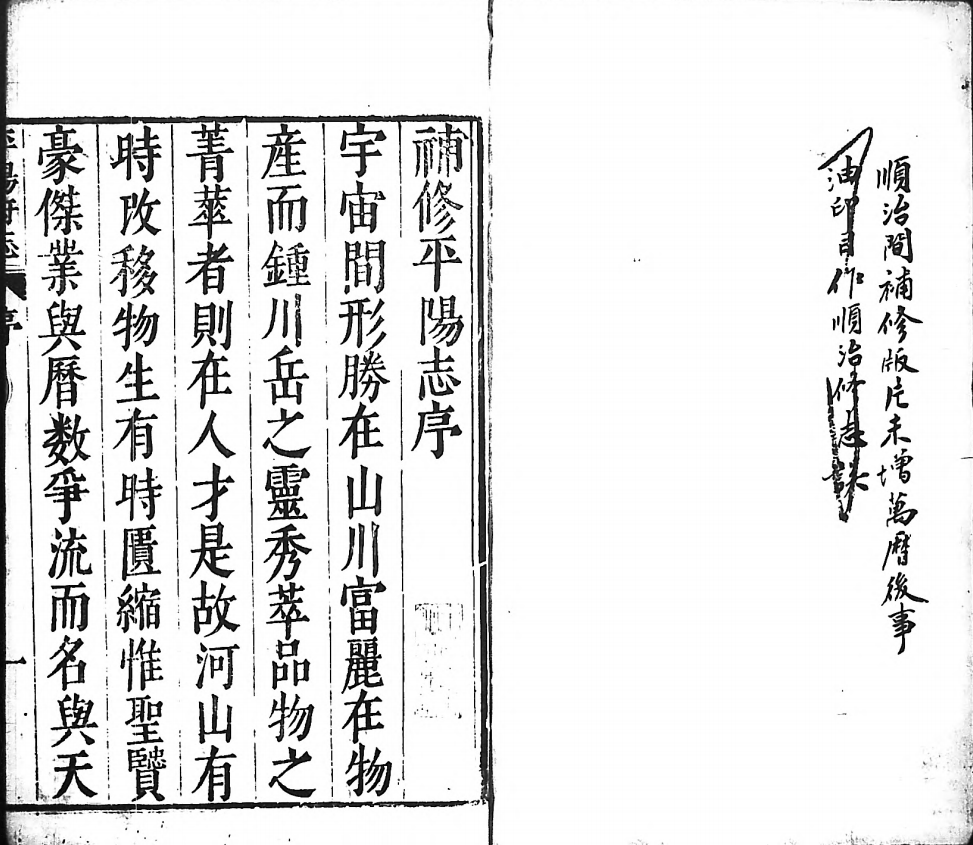 順治間補修版片未增萬曆後事
油印目作順治修志誤
補修平陽志序
宇宙間形勝在山川富麗在物
産而鍾川岳之靈秀萃品物之
菁華者則在人才是故河山有
時改移物生有時匱縮惟聖賢
豪傑業與曆数爭流而名與天
平陽府志 序 一